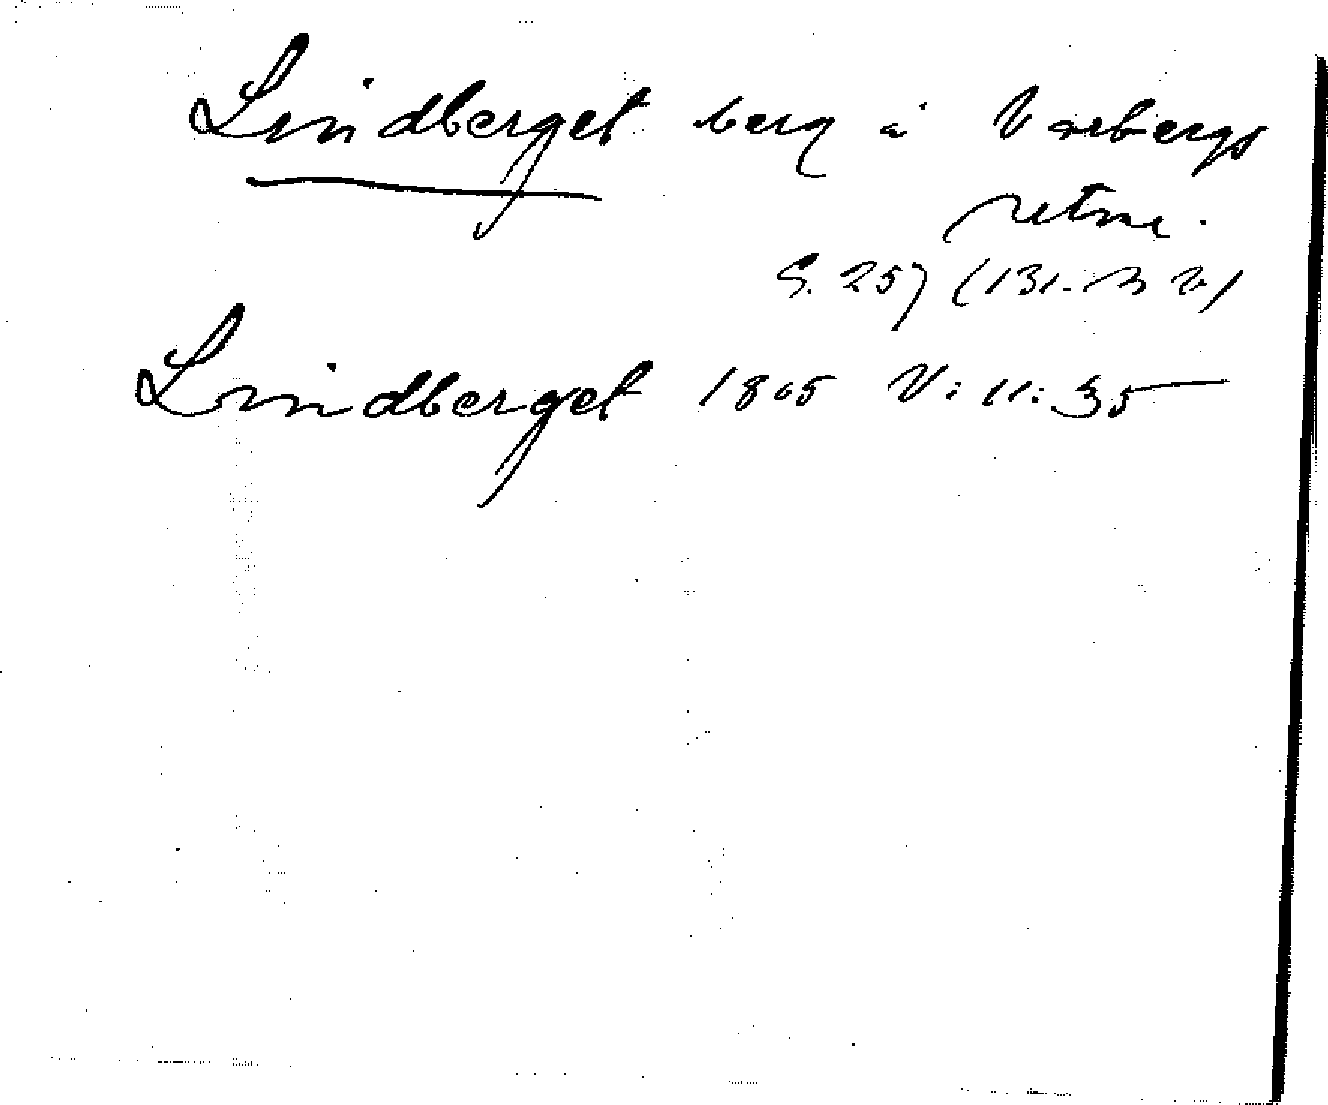 Lindberget berg i Varbergs
retme.
G. 257 (131.
Lindberget 1805 V: 11: 35